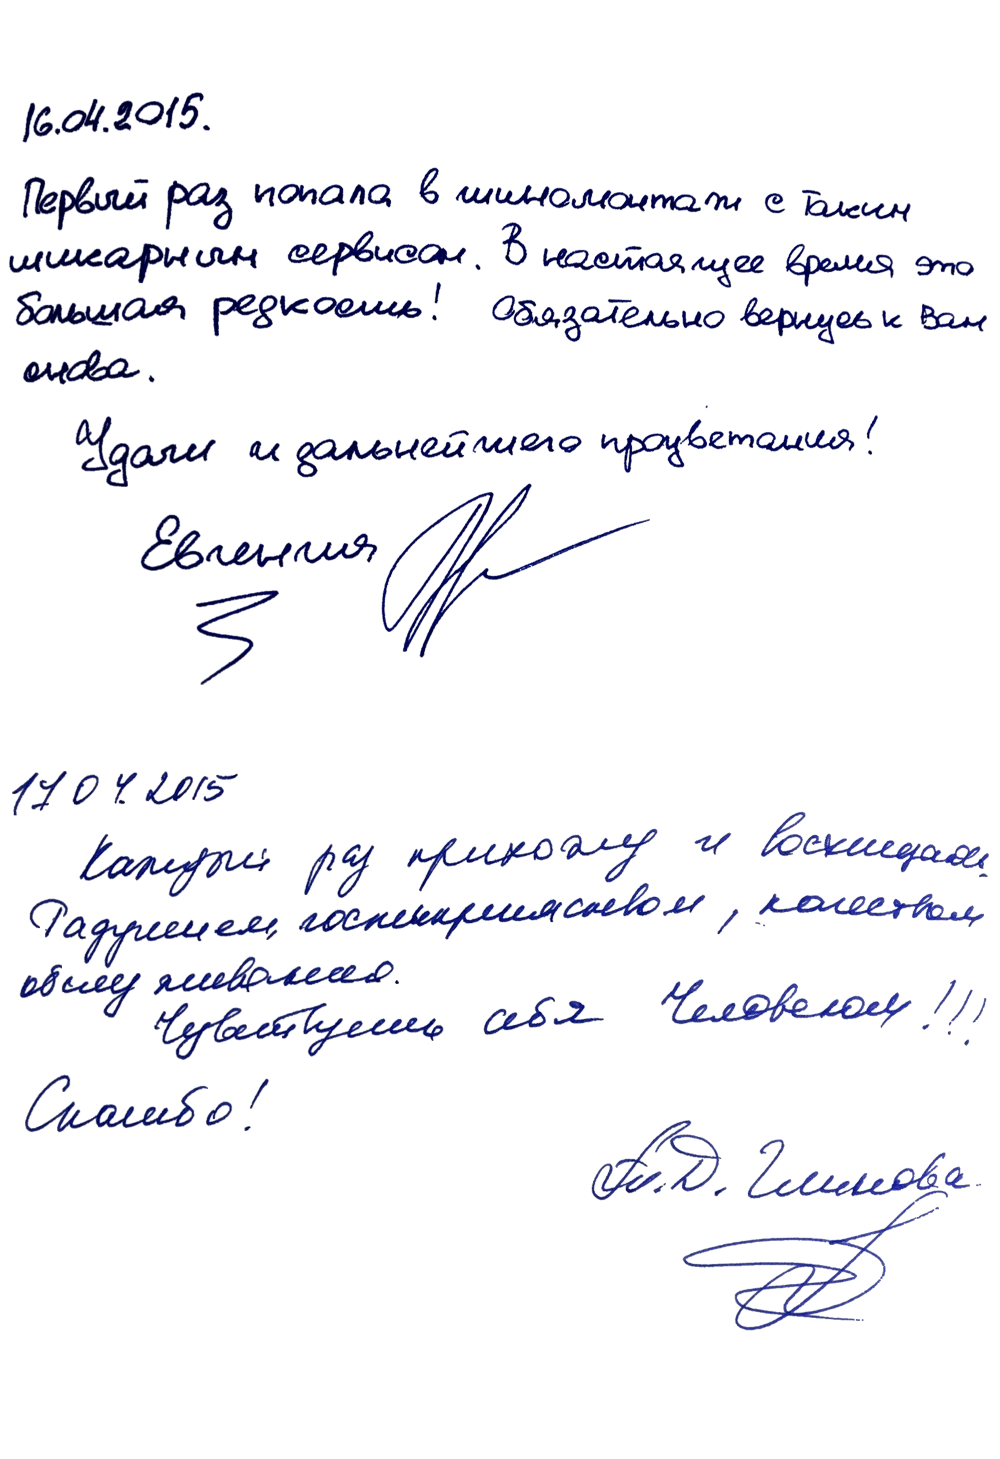 16.04.2015.
Первый раз попала в шиномонтаж с таким
шикарным сервисом. В настоящее время это
большая редкость! Обязательно вернусь к Вам
снова.
Удачи и дальнейшего процветания!
Евгения
17 04. 2015
Каждый раз прихожу и восхищаюсь
Радушием, гостеприимством, качеством
обслуживания.
Чувствуешь себя Человеком!!!
Спасибо!
Д. Глинова